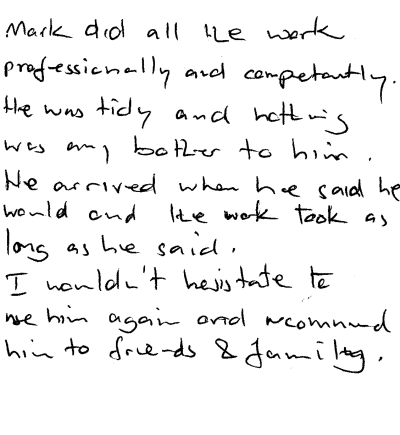 Mark did all the work
professionally and competantly.
He was tidy and nothing
was any bother to him.
He arrived when he said he
would and the work took as
long as he said.
I wouldn't hesistate to
use him again and recommend
him to friends & family.